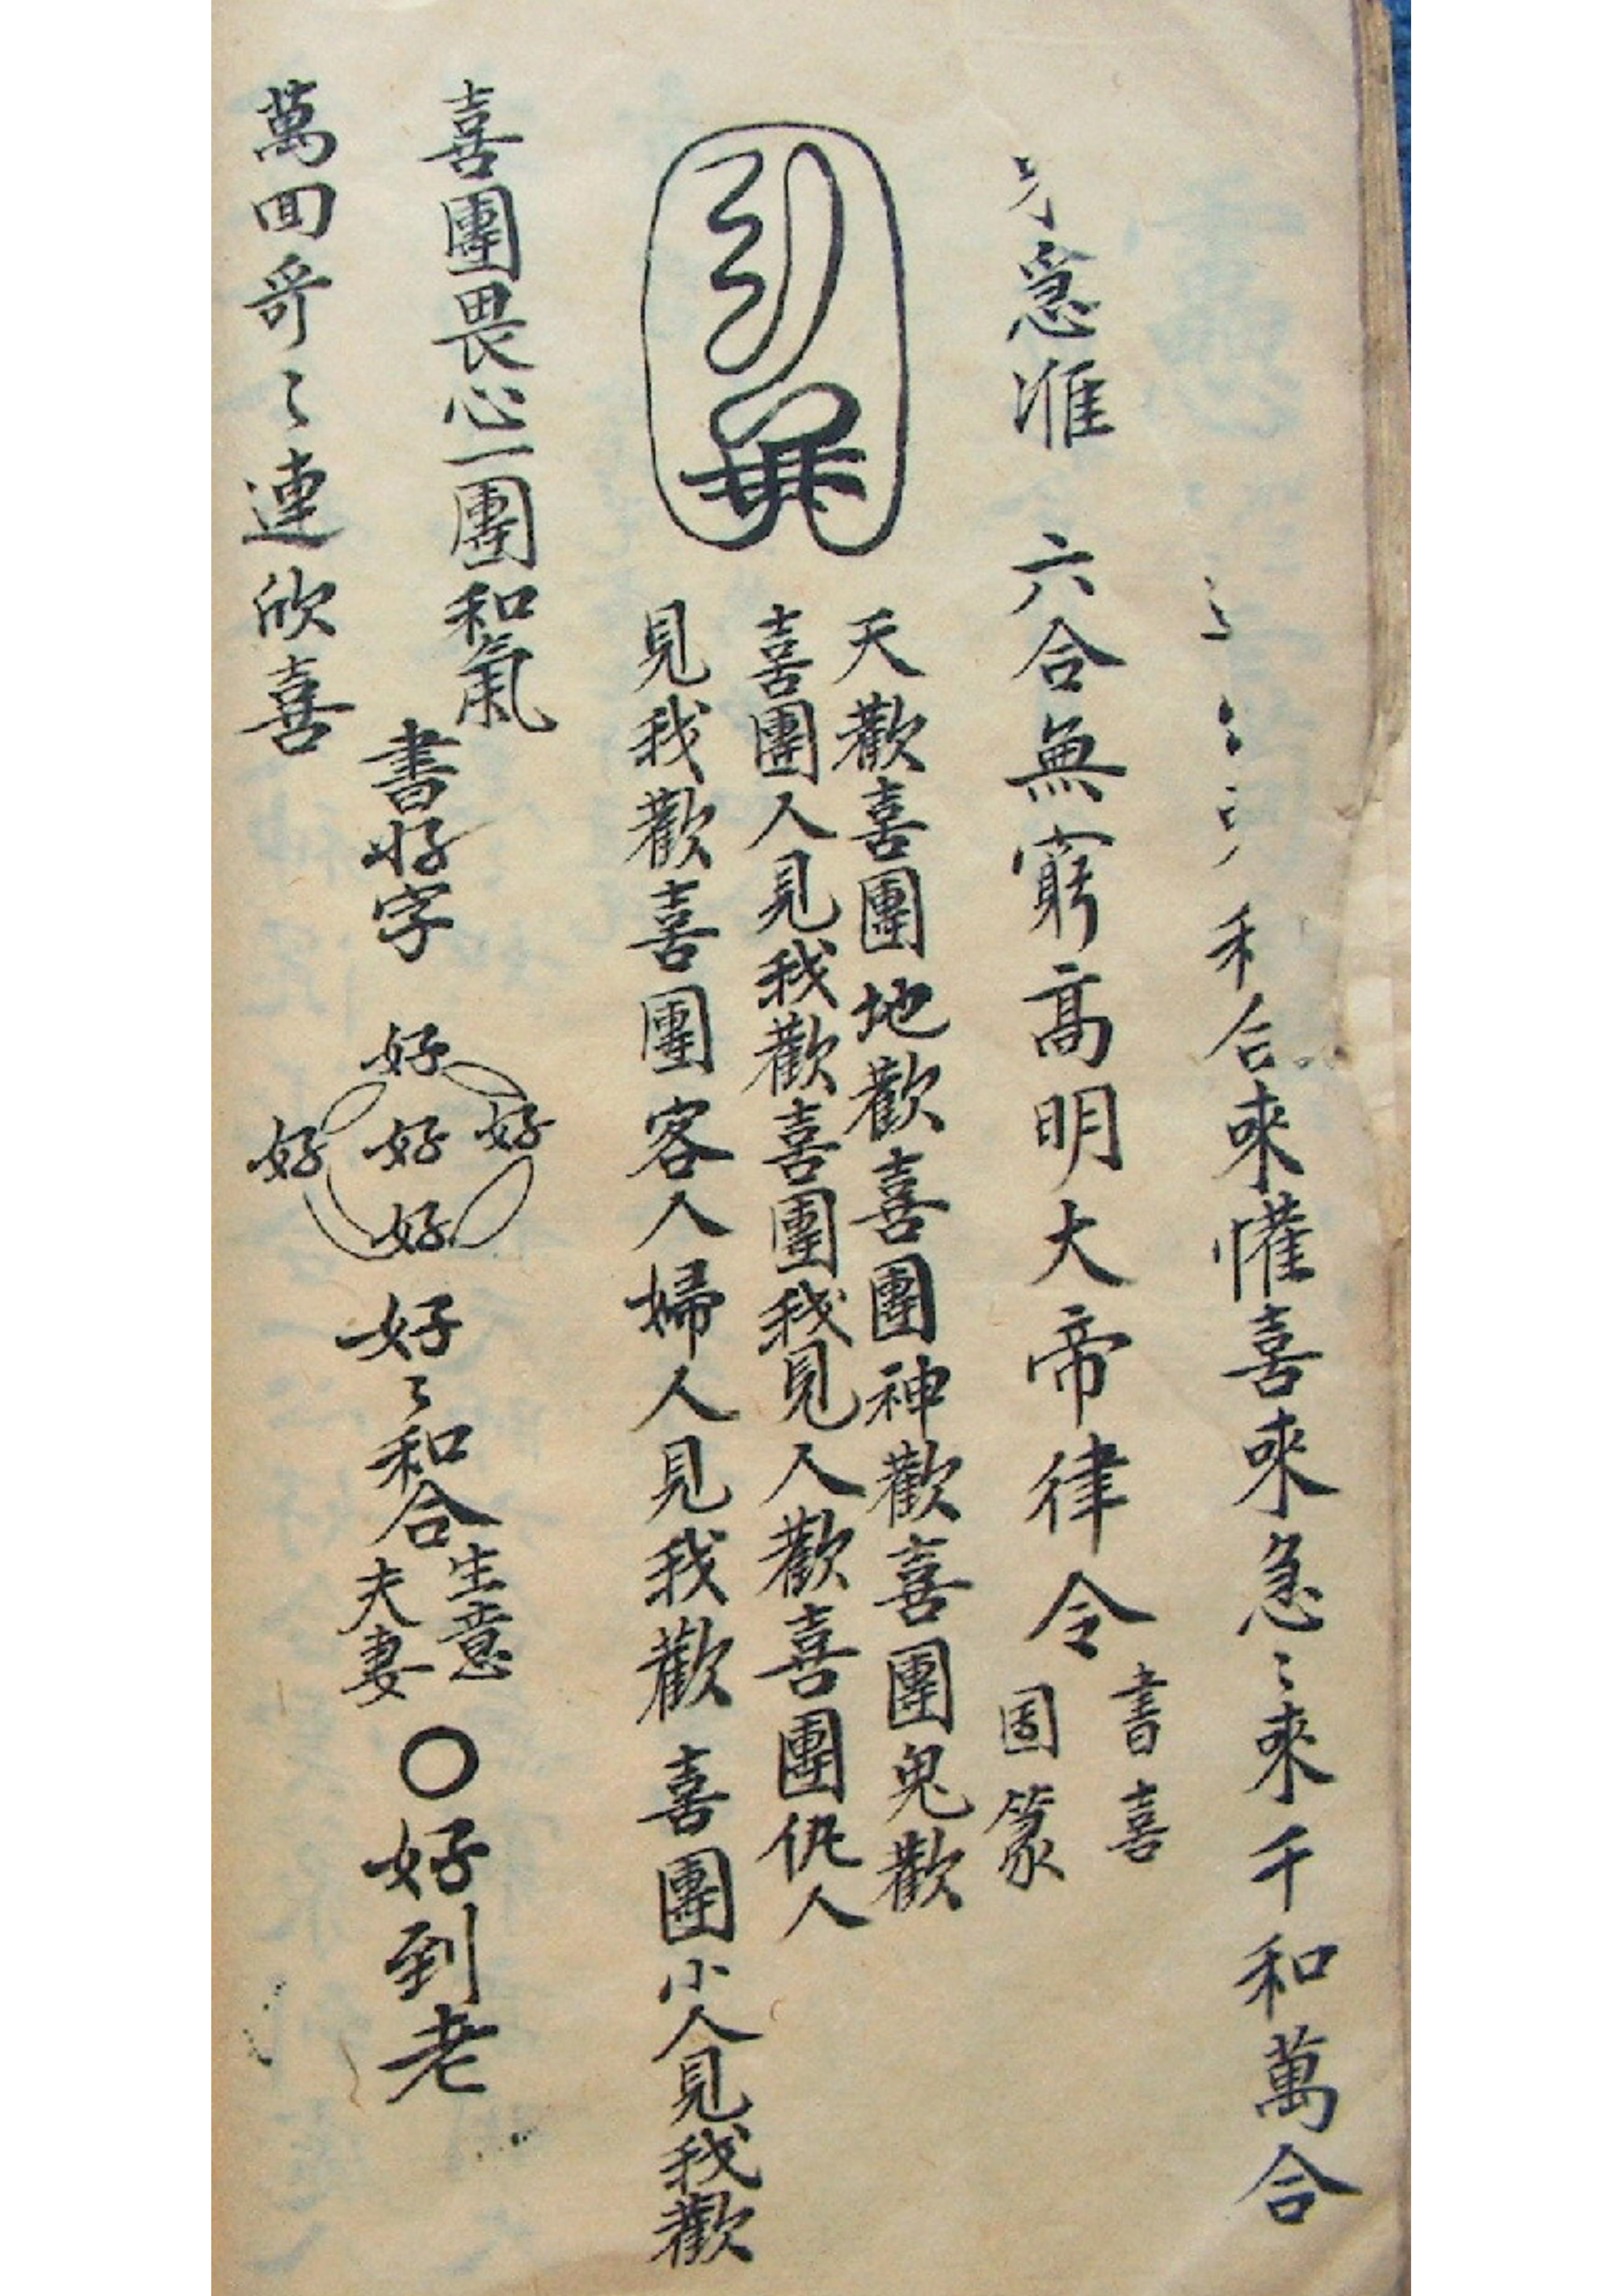 和合來懽喜來急〻來千和萬合
急准 六合無窮高明大帝律令
書喜
圖篆
天歡喜團地歡喜團神歡喜團鬼歡
喜團人見我歡喜團我見人歡喜團仇人
見我歡喜團客人婦人見我歡喜團小人見我歡
喜團畏心一團和氣
萬回哥〻連欣喜
書好字
好
好 好 好
好
好〻和合
生意
夫妻
〇好到老